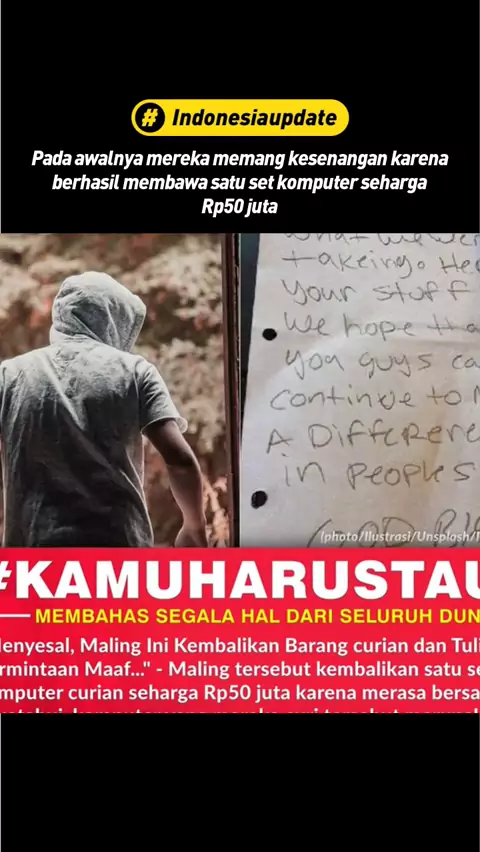 # Indonesiaupdate
Pada awalnya mereka memang kesenangan karena
berhasil membawa satu set komputer seharga
Rp50 juta
what we wer
takeing. Hec
your stuff
We hope tha
you guys ca
continue to M
A Difference
in peoples
(photo/Ilustrasi/Unsplash/
#KAMUHARUSTAU
MEMBAHAS SEGALA HAL DARI SELURUH DUN
Menyesal, Maling Ini Kembalikan Barang curian dan Tuli
rmintaan Maaf..." - Maling tersebut kembalikan satu se
mputer curian seharga Rp50 juta karena merasa bersa